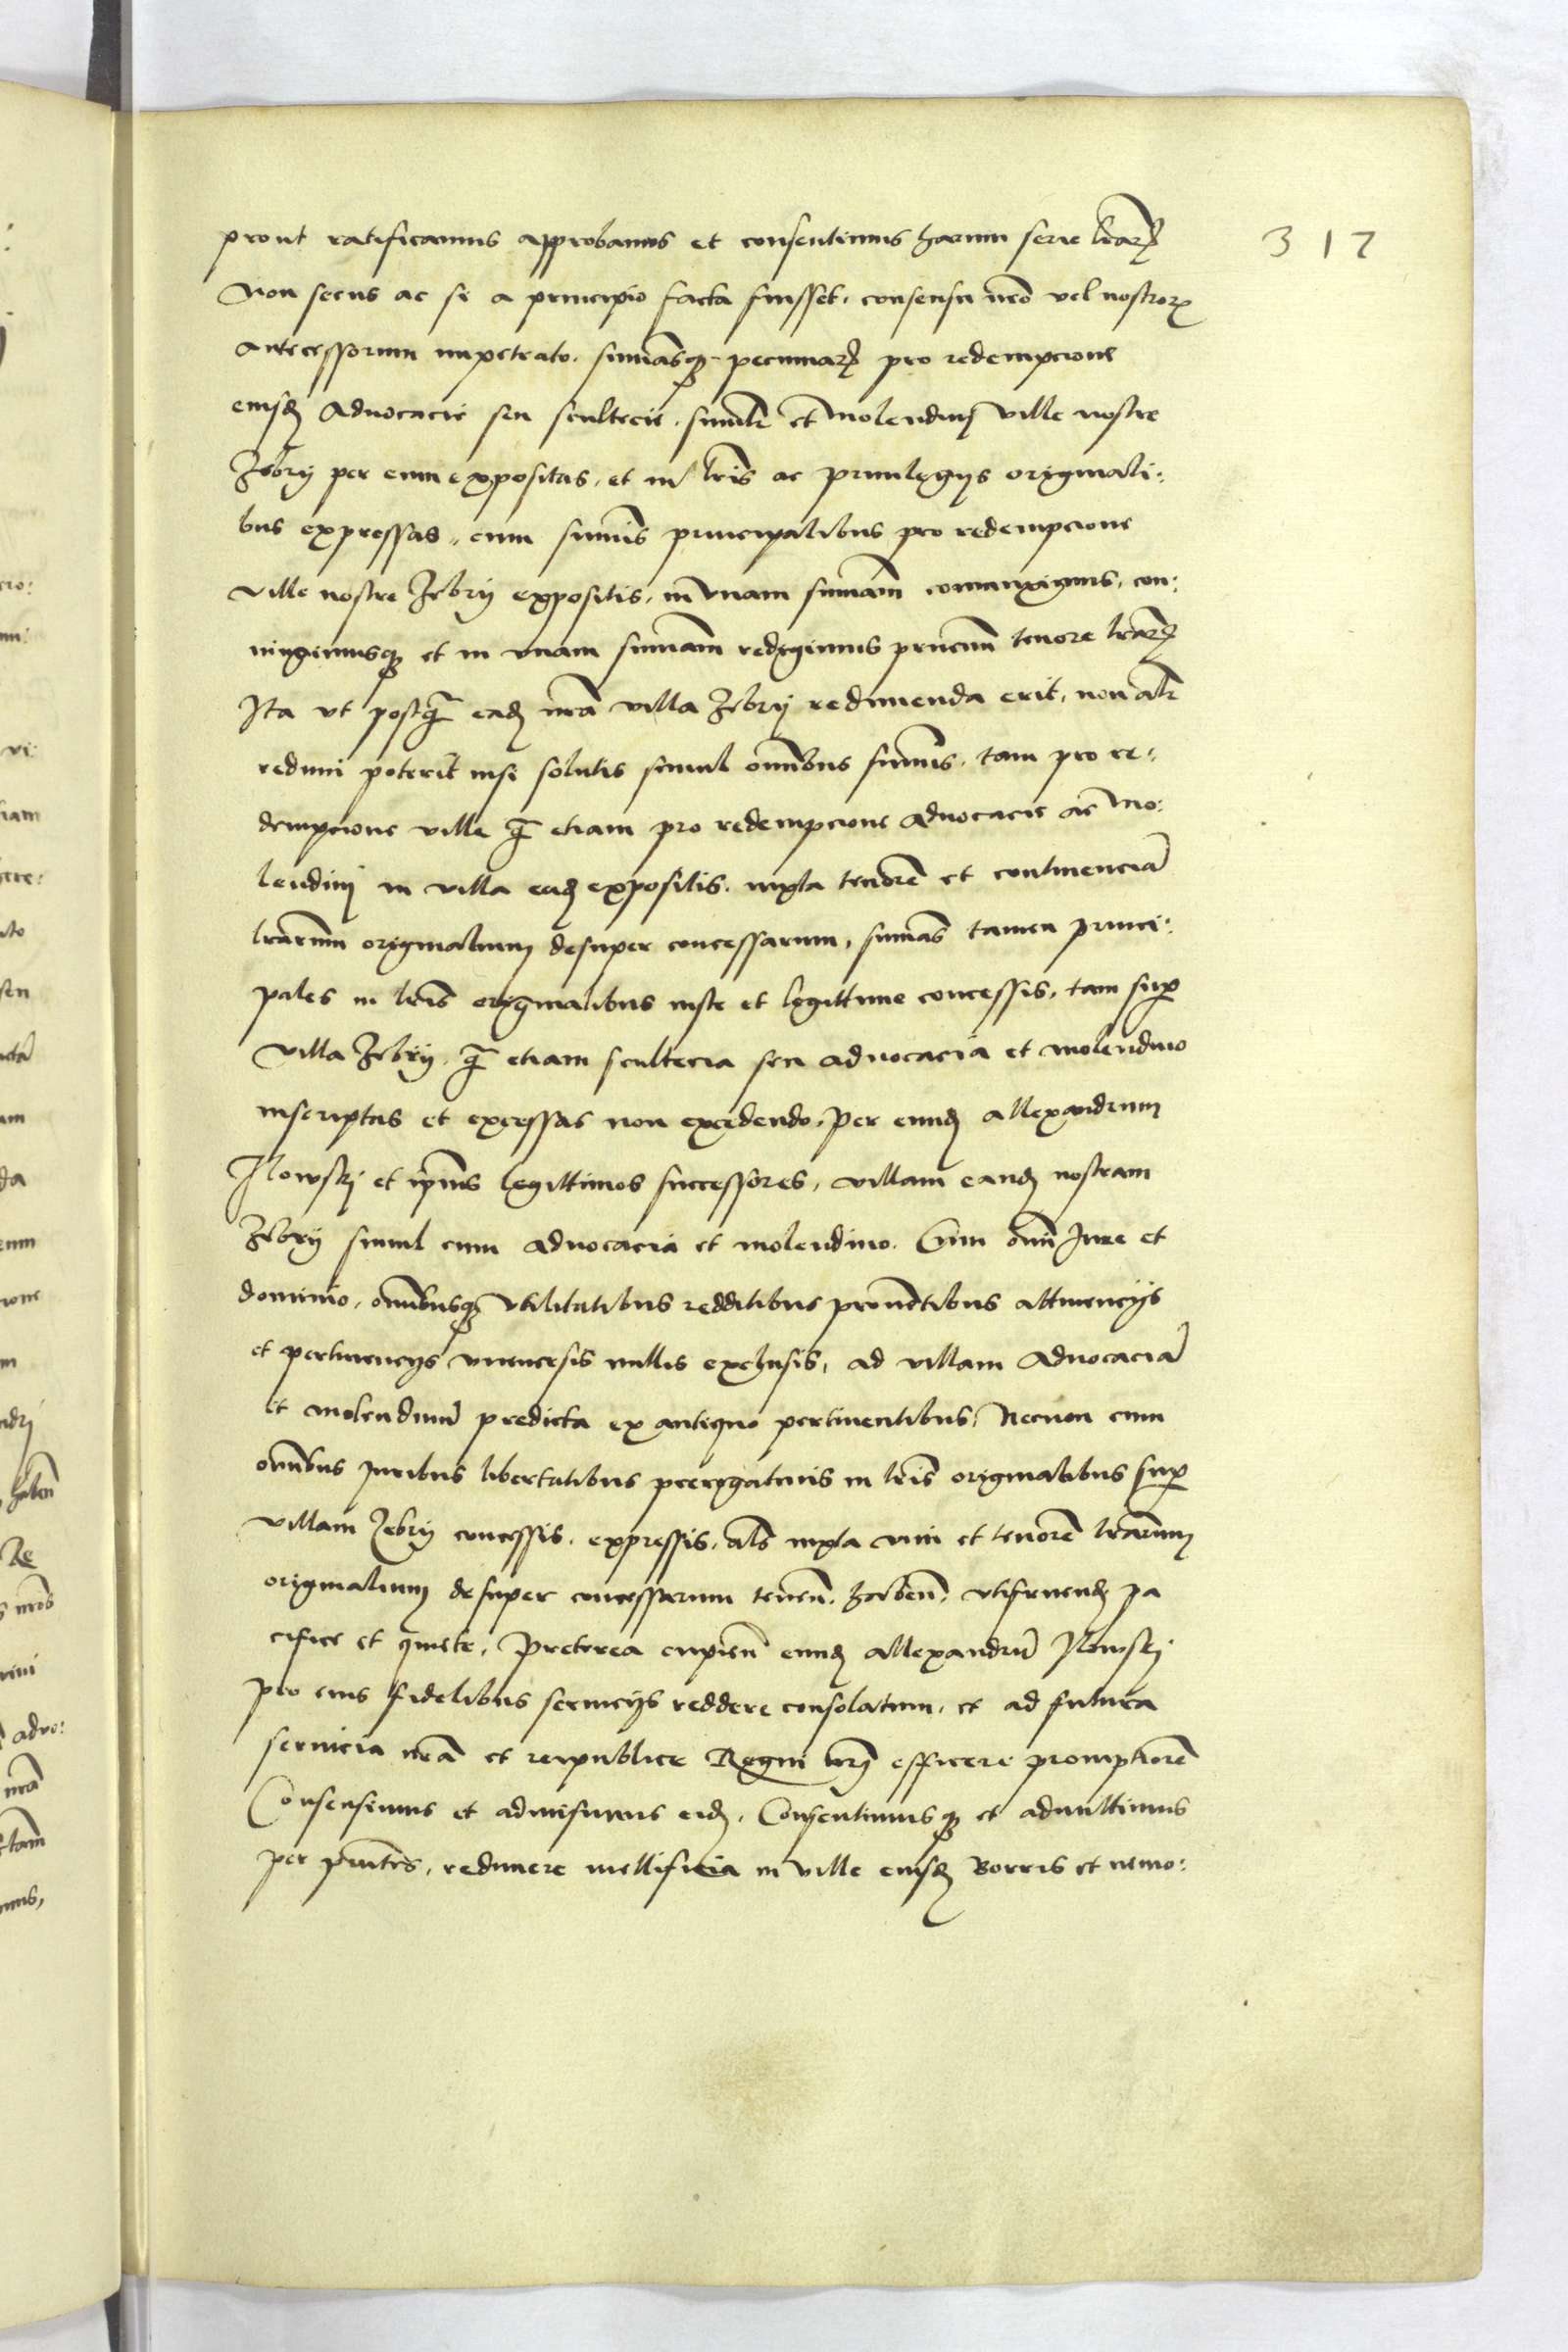 prout ratificamus approbamus et consentimus harum serie lrarꝝ 317
Non secus ac si a principio facta fuisset, consensu nr̃o vel nostroꝝ
antecessorum impetrato. sum̃asqꝫ pecuniarꝝ pro redempcione
eiusdꝫ Advocacie seu scultecie, simil̃r et Molendinj ville nostre
Zebrij per eum expositas, et in lr̃is ac privilegijs originali:
bus expressas, cum sum̃is principalibus pro redempcione
ville nostre Zebrij expositis, in vnam summam coniunxigimus, con:
iungimusqꝫ et in vnam summam redigimus pñcium tenore lrarꝝ
Ita vt postꝗ̃ eadꝫ nr̃a villa Zebrij redimenda erit, non al̃r
redimi poterit nisi solutis simul omnibus sum̃is, tam pro re:
dempcione ville ꝗ̃ etiam pro redempcione advocacie ac Mo:
lendinj in villa eadꝫ expositis. iuxta tenorẽ et continenciã
lrarum originalium desuper concessarum, sum̃as tamen princi:
pales in lr̃is originalibus iuste et legittime concessis, tam suꝑ
Villa Zebrij, ꝗ̃ etiam scultecia seu advocacia et molendino
inscriptas et excessas non excedendo, Per eundꝫ Allexandrum
Ilowskj et ip̃ius legittimos successores, villam eandꝫ nostram
Zebrij simul cum advocacia et molendino. Cum om̃i Jure et
dominio, omnibusqꝫ vtilitatibus redditibus proventibus attinencijs
et pertinencijs vniversis nullis exclusis, ad villam Advocaciã
et molendinũ predicta ex antiquo pertinentibus, Necnon cum
omnibus juribus libertatibus prerogativis in lr̃is originalibus suꝑ
villam Zebrij concessis, expressis, al̃s iuxta vim et tenorẽ lrarum
originalium desuper concessarum teneñ. habeñ. vtifruendꝫ pa
cifice et quiete. Preterea cupieñ eundꝫ Allexandrũ Ilowskj
pro eius fidelibus servicijs reddere consolatum, et ad futura
servicia nr̃a et reipublice Regni nr̃j efficere promptiorẽ
Consensimus et admisimus eidꝫ, Consentimusqꝫ et admittimus
per pñtes, redimere mellificia in ville eiusdꝫ Borris et nemo: